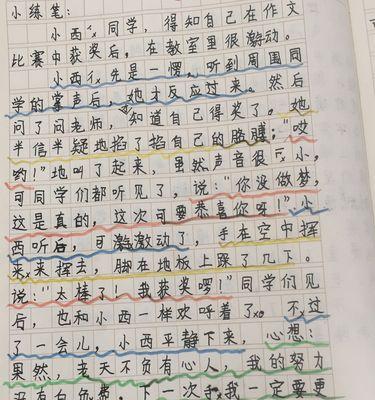 小练笔：
小西同学，得知自己在作文
比赛中获奖后，在教室里很激动。
小西先是一愣，听到周围同
学的掌声后，她才反应过来。然后
问了问老师，知道自己得奖了。她
半信半疑地掐了掐自己的胳膊；“哎
哟！”地叫了起来，虽然声音很小，
可同学们都听见了，说：“你没做梦，
这是真的，这次可要恭喜你呀！”小
西听后，可激激动了，手在空中挥
来挥去，脚在地板上跺了几下。
说：“太棒了！我获奖啰！”同学们见
后，也和小西一样欢呼着了。不过
了一会儿，小西平静下来，心想：
果然，老天不负有心人，我的努力
没有白费，下一次我一定要更